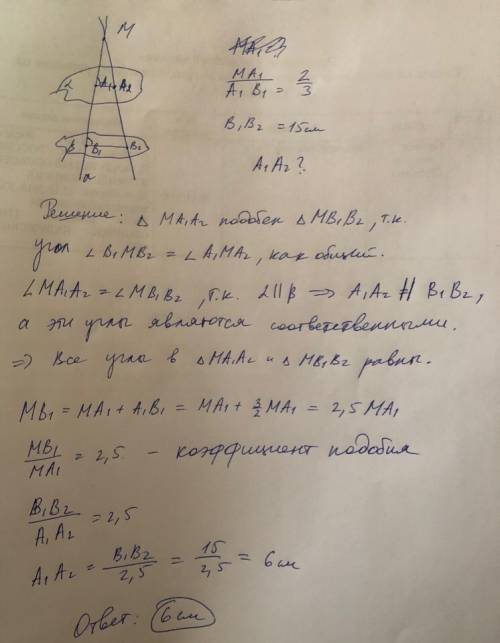 M
α A₁ A₂
β B₁ B₂
a
MA₁ / A₁B₁ = 2/3
B₁B₂ = 15 см
A₁A₂ ?
Решение: △ MA₁A₂ подобен △ MB₁B₂, т.к.
угол ∠ B₁MB₂ = ∠ A₁MA₂, как общий.
∠MA₁A₂ = ∠MB₁B₂, т.к. α||β => A₁A₂ || B₁B₂,
а эти углы являются соответственными.
=> Все углы в △MA₁A₂ и △MB₁B₂ равны.
MB₁ = MA₁ + A₁B₁ = MA₁ + 3/2 MA₁ = 2,5 MA₁
MB₁ / MA₁ = 2,5 – коэффициент подобия
B₁B₂ / A₁A₂ = 2,5
A₁A₂ = B₁B₂ / 2,5 = 15 / 2,5 = 6 см
Ответ: 6 см